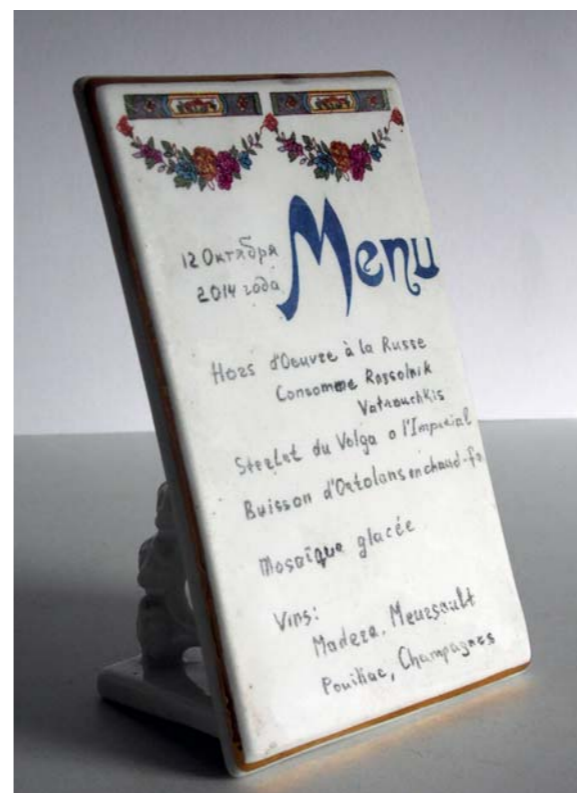 Menu
12 Октября
2014 года
Hors d'Oeuvre à la Russe
Consomme Rassolnik
Vatrouchkis
Sterlet du Volga a l'Imperial
Buisson d'Ortolans en chaud-fo
Mosaïque glacée
Vins:
Madera, Meursault
Pouillac, Champagnes